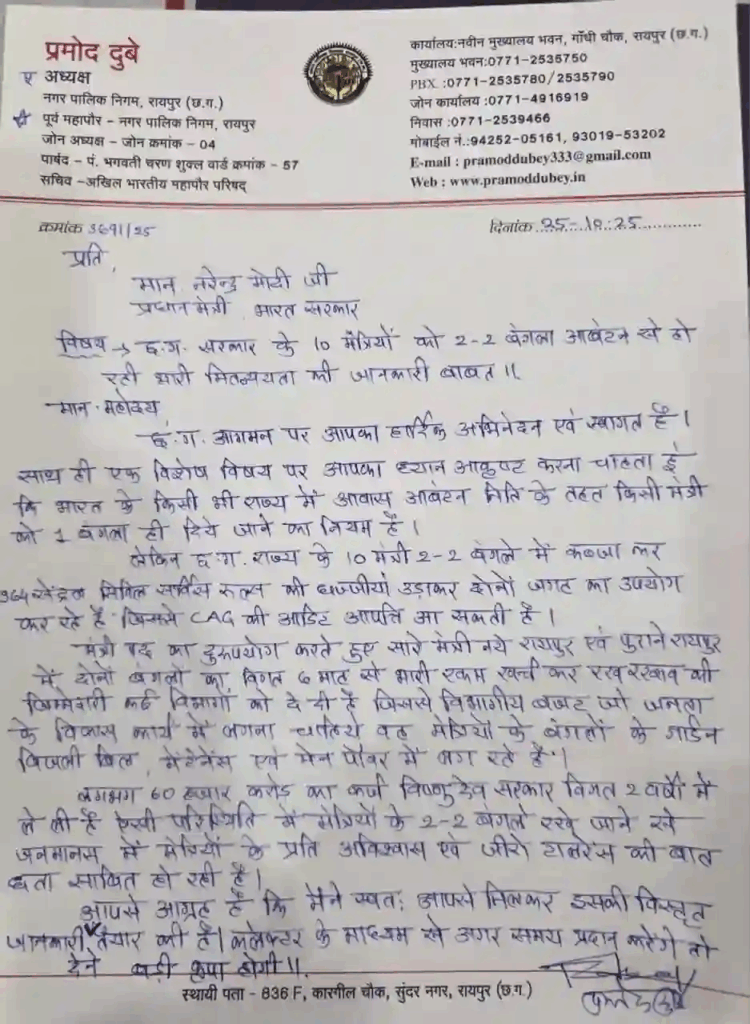 प्रमोद दुबे
अध्यक्ष
नगर पालिक निगम, रायपुर (छ.ग.)
पूर्व महापौर - नगर पालिक निगम, रायपुर
जोन अध्यक्ष - जोन क्रमांक - 04
पार्षद - पं. भगवती चरण शुक्ल वार्ड क्रमांक - 57
सचिव -अखिल भारतीय महापौर परिषद्
कार्यालय:नवीन मुख्यालय भवन, गाँधी चौक, रायपुर (छ.ग.)
मुख्यालय भवन:0771-2535750
PBX :0771-2535780/2535790
जोन कार्यालय :0771-4916919
निवास :0771-2539466
मोबाईल नं.:94252-05161, 93019-53202
E-mail : pramoddubey333@gmail.com
Web : www.pramoddubey.in
क्रमांक 3691/25
दिनांक 25-10-25
प्रति,
मान. नरेन्द्र मोदी जी
प्रधान मंत्री, भारत सरकार
विषय → छ.ग. सरकार के 10 मंत्रियों को 2-2 बंगला आबंटन से हो
रही भारी मितव्ययता की जानकारी बाबत॥
मान. महोदय
छ.ग. आगमन पर आपका हार्दिक अभिनंदन एवं स्वागत है।
साथ ही एक विशेष विषय पर आपका ध्यान आकृष्ट करना चाहता हूं
कि भारत के किसी भी राज्य में आवास आबंटन निति के तहत किसी मंत्री
को 1 बंगला ही दिये जाने का नियम है।
लेकिन छ.ग. राज्य के 10 मंत्री 2-2 बंगले में कब्जा कर
सिविल सर्विस रूल्स की धज्जीयां उड़ाकर दोनों जगह का उपयोग
कर रहे है जिससे CAG की आडिट आपत्ति आ सकती है।
मंत्री पद का दुरुपयोग करते हुए सारे मंत्री नये रायपुर एवं पुराने रायपुर
में दोनों बंगलों का विगत 6 माह से भारी रकम खर्च कर रख रखाव की
जिम्मेदारी कई विभागों को दे दी है जिससे विभागीय बजट जो जनता
के विकास कार्य में लगना चाहिये वह मंत्रियों के बंगलों के गार्डन
बिजली बिल, मेंटेनेंस एवं मेन पॉवर में लग रहे है।
लगभग 60 हजार करोड़ का कर्ज विष्णुदेव सरकार विगत 2 वर्षों में
ले ली है ऐसी परिस्थिति में मंत्रियों के 2-2 बंगले रखे जाने से
जनमानस में मंत्रियों के प्रति अविश्वास एवं जीरो टालरेंस की बात
धता साबित हो रही है।
आपसे आग्रह है कि मैंने स्वतः आपसे मिलकर इसकी विस्तृत
जानकारी तैयार की है। कलेक्टर के माध्यम से अगर समय प्रदान करेंगे तो
देने बड़ी कृपा होगी॥
स्थायी पता - 836 F, कारगील चौक, सुंदर नगर, रायपुर (छ.ग.)